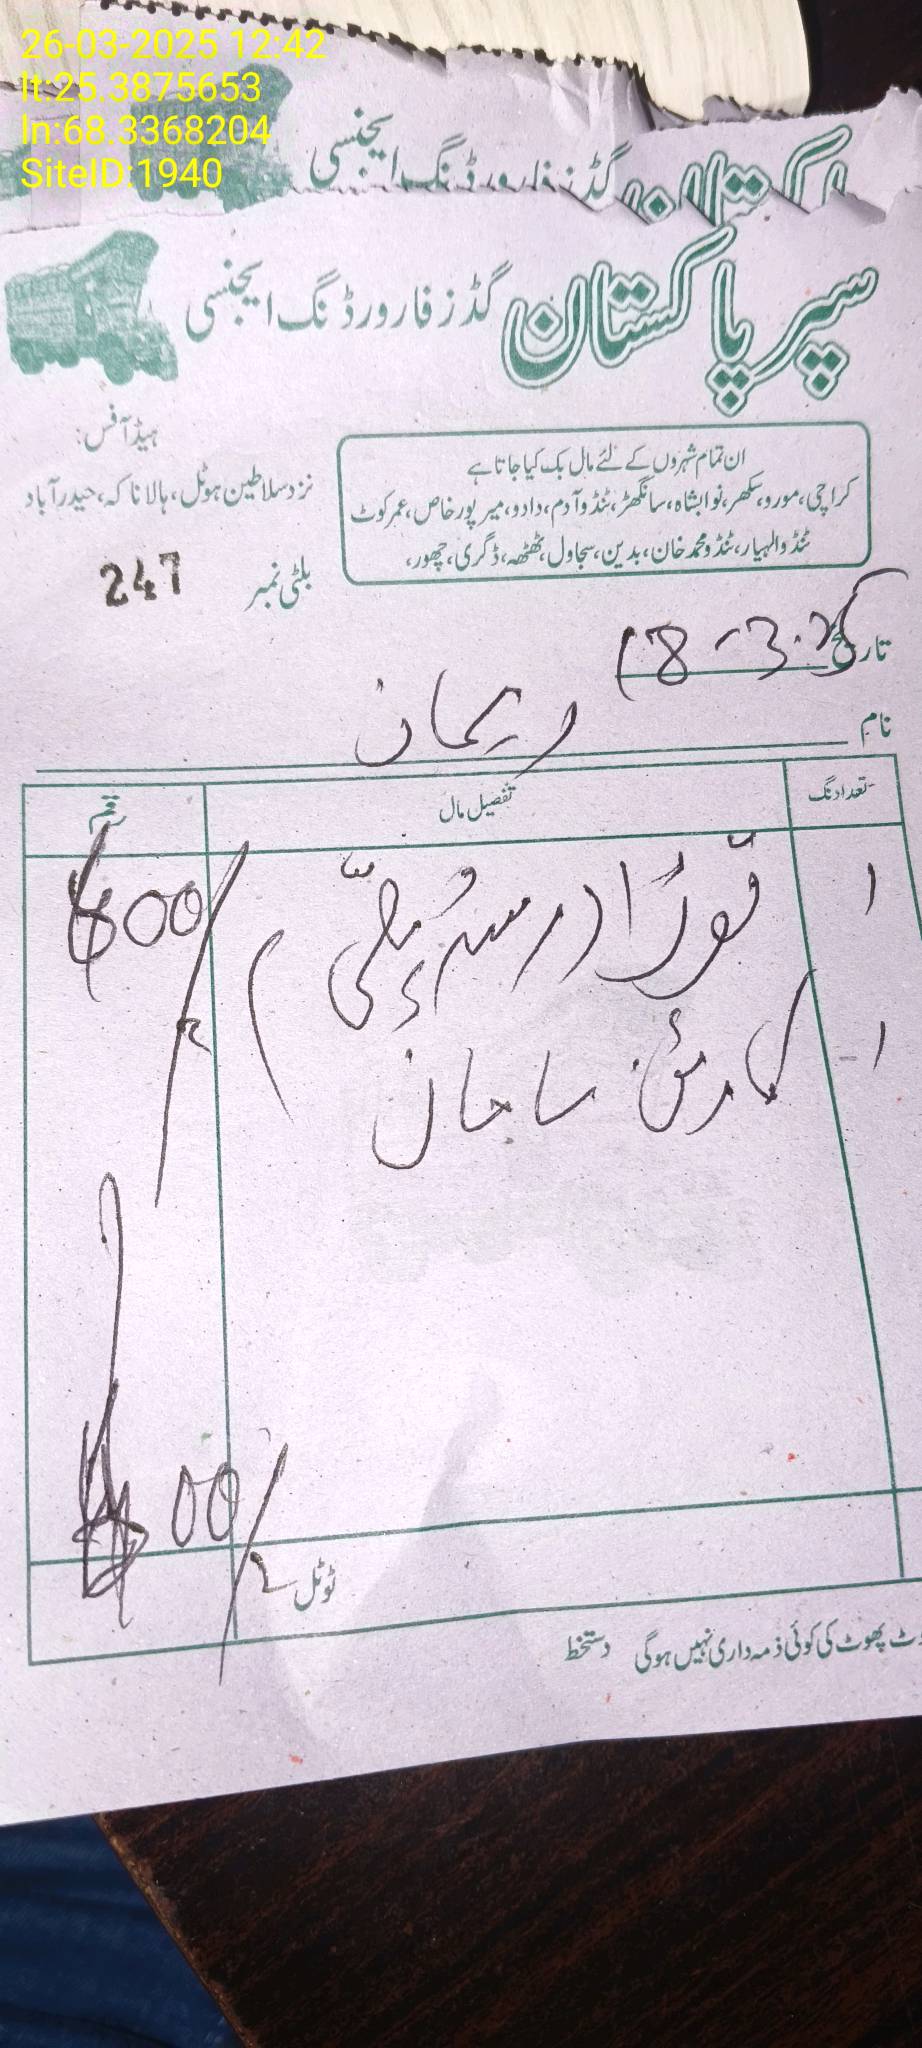 26-03-2025 12:42
lt:25.3875653
ln:68.3368204
SiteID:1940
پاکستان گڈز فارورڈنگ ایجنسی
سپر پاکستان گڈز فارورڈنگ ایجنسی
ہیڈ آفس:
نزد سلاطین ہوٹل، ہالا ناکہ، حیدرآباد
ان تمام شہروں کے لئے مال بک کیا جاتا ہے
کراچی، مورو، سکھر، نوابشاہ، سانگھڑ، ٹنڈو آدم، دادو، میرپور خاص، عمر کوٹ
ٹنڈو الہیار، ٹنڈو محمد خان، بدین، سجاول، ٹھٹھہ، ڈگری، چھور،
بلٹی نمبر 247
تاریخ 18-3-25
نام
تعداد نگ تفصیل مال رقم
۱
۱ سامان
00/
ٹوٹل
ٹ پھوٹ کی کوئی ذمہ داری نہیں ہوگی دستخط